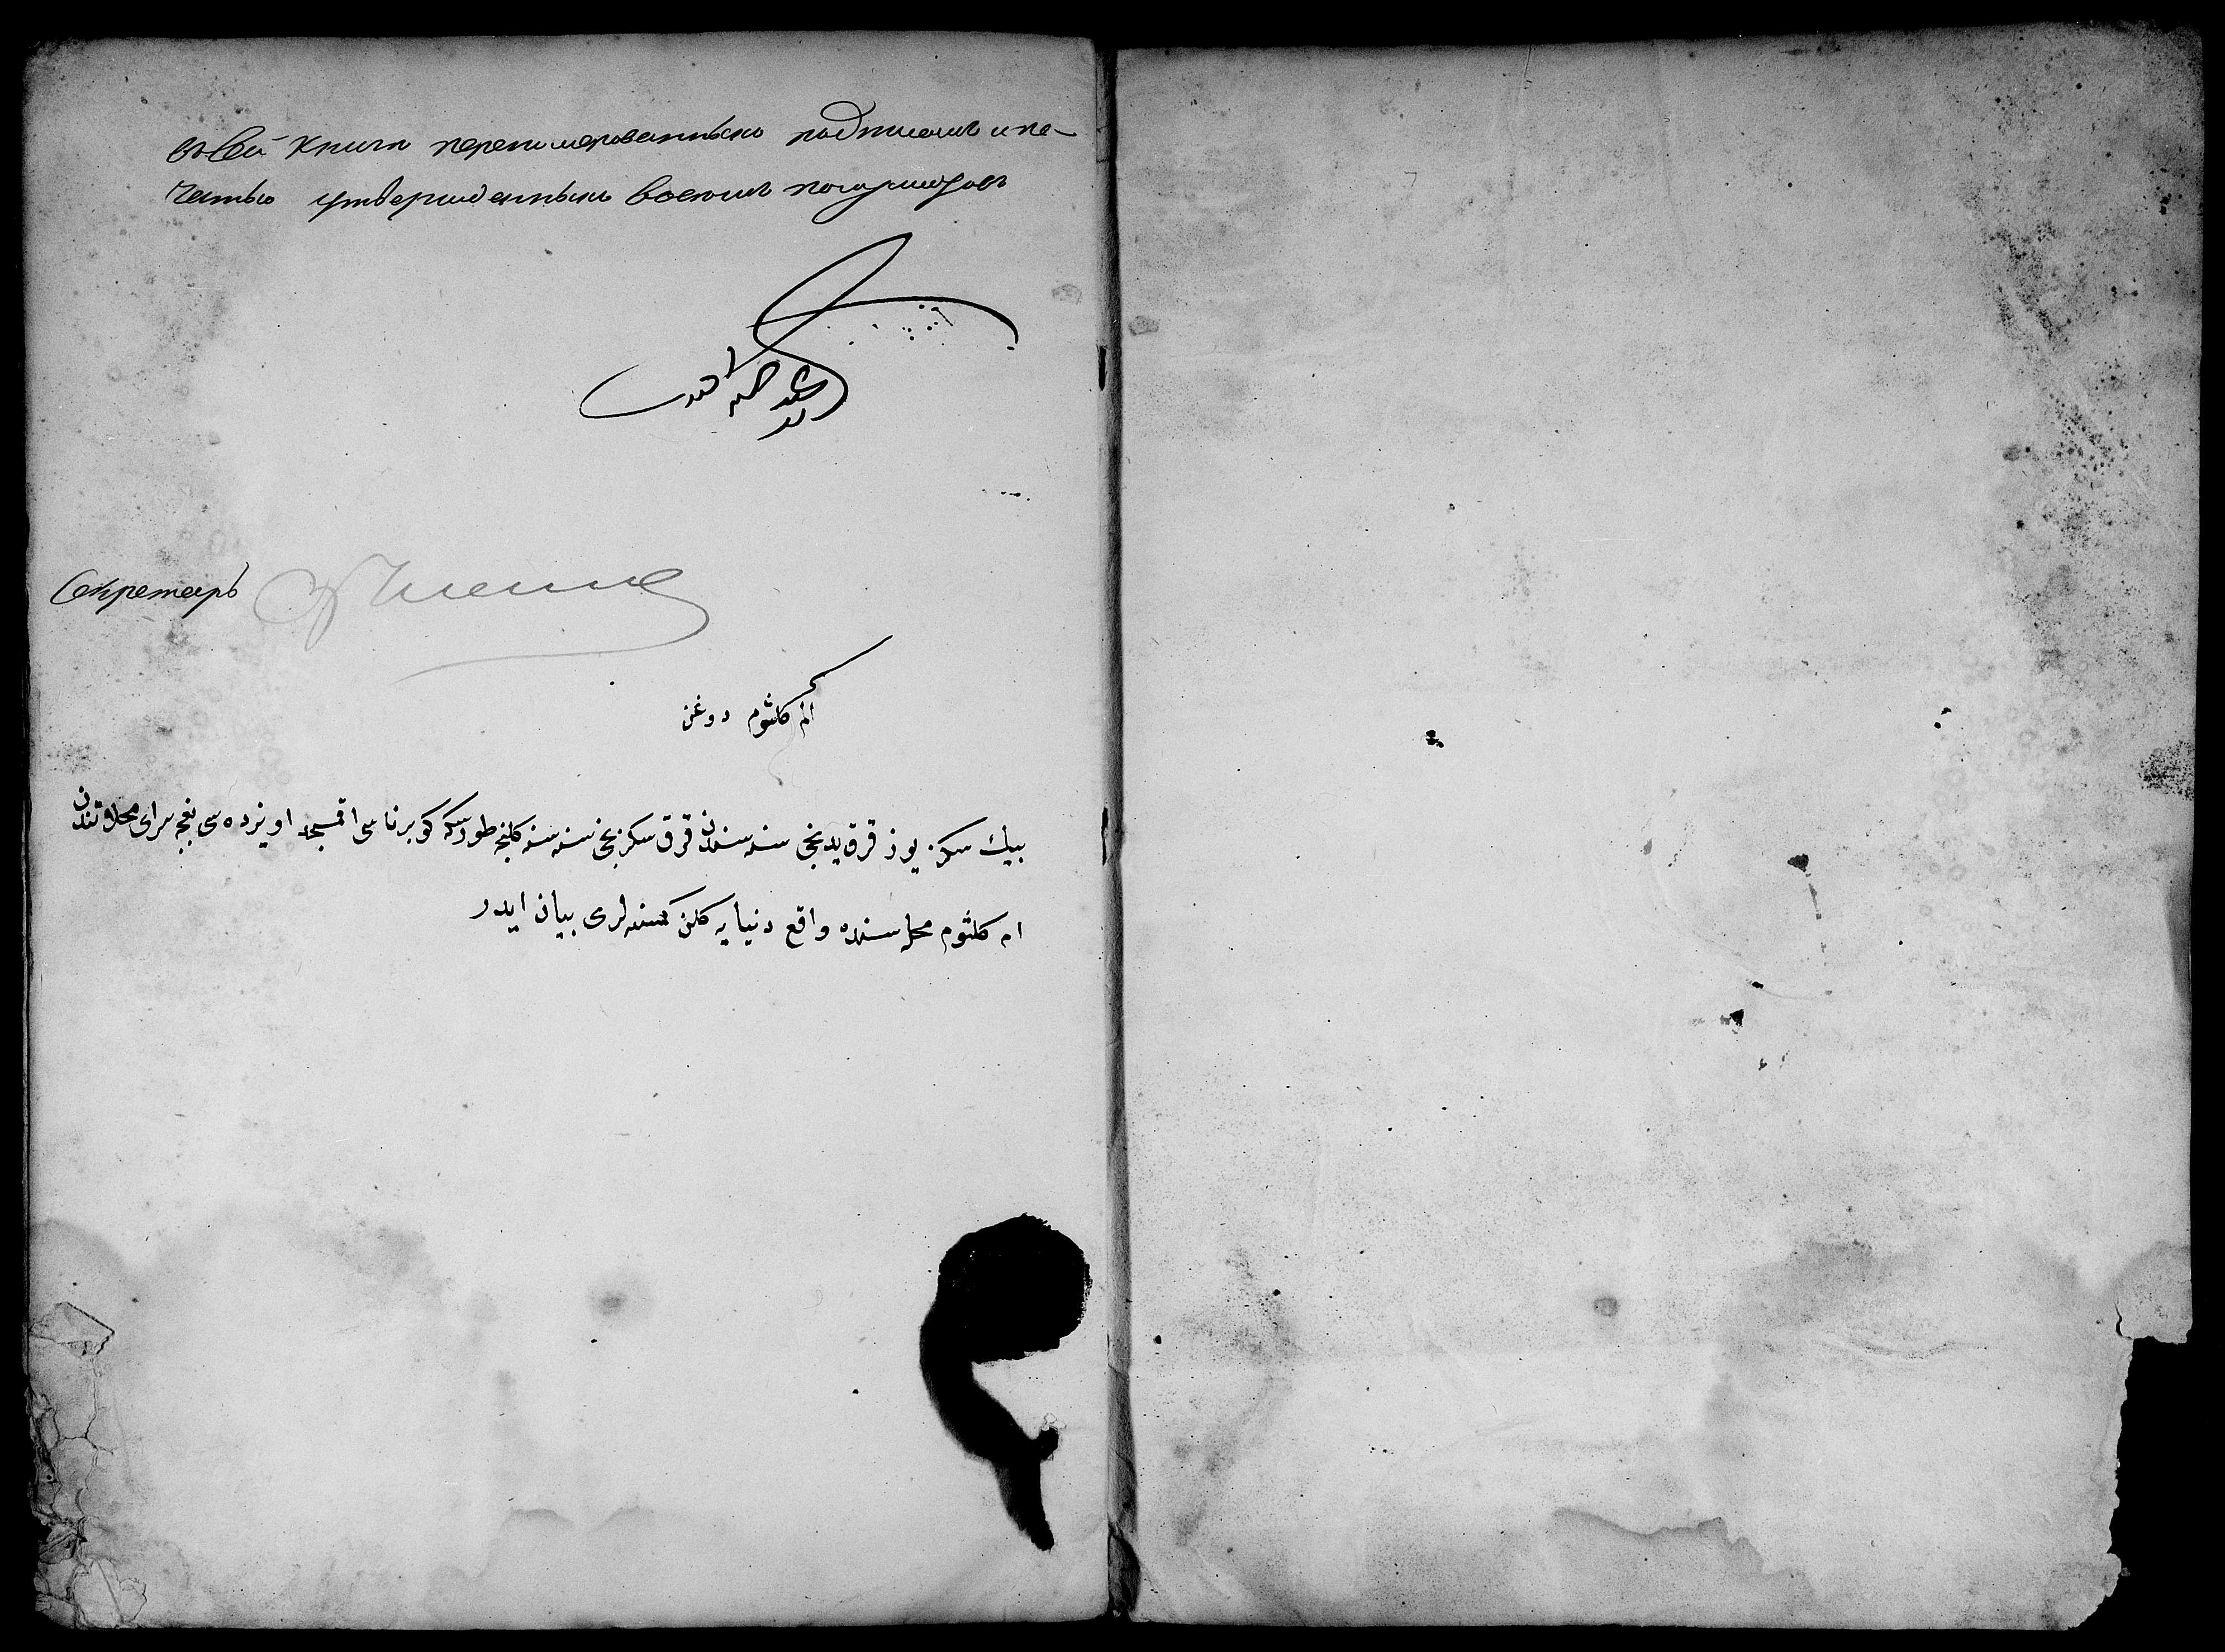 въ сей книги перенумерованныхъ подписомъ и пе-
чатью утвержденныхъ восемь полулистовъ
Секретарь
ام كلثوم دوغن
بيك سكز يوز قرق يدنجى سنه سندن قرق سكزنجى سنه سنه كلنجه طورسه كوبرناسى اقمسجد اويزده سى بغچه سراى محلاتندن
ام كلثوم محله سنده واقع دنيايه كلن كمسنه لرى بيان ايدر